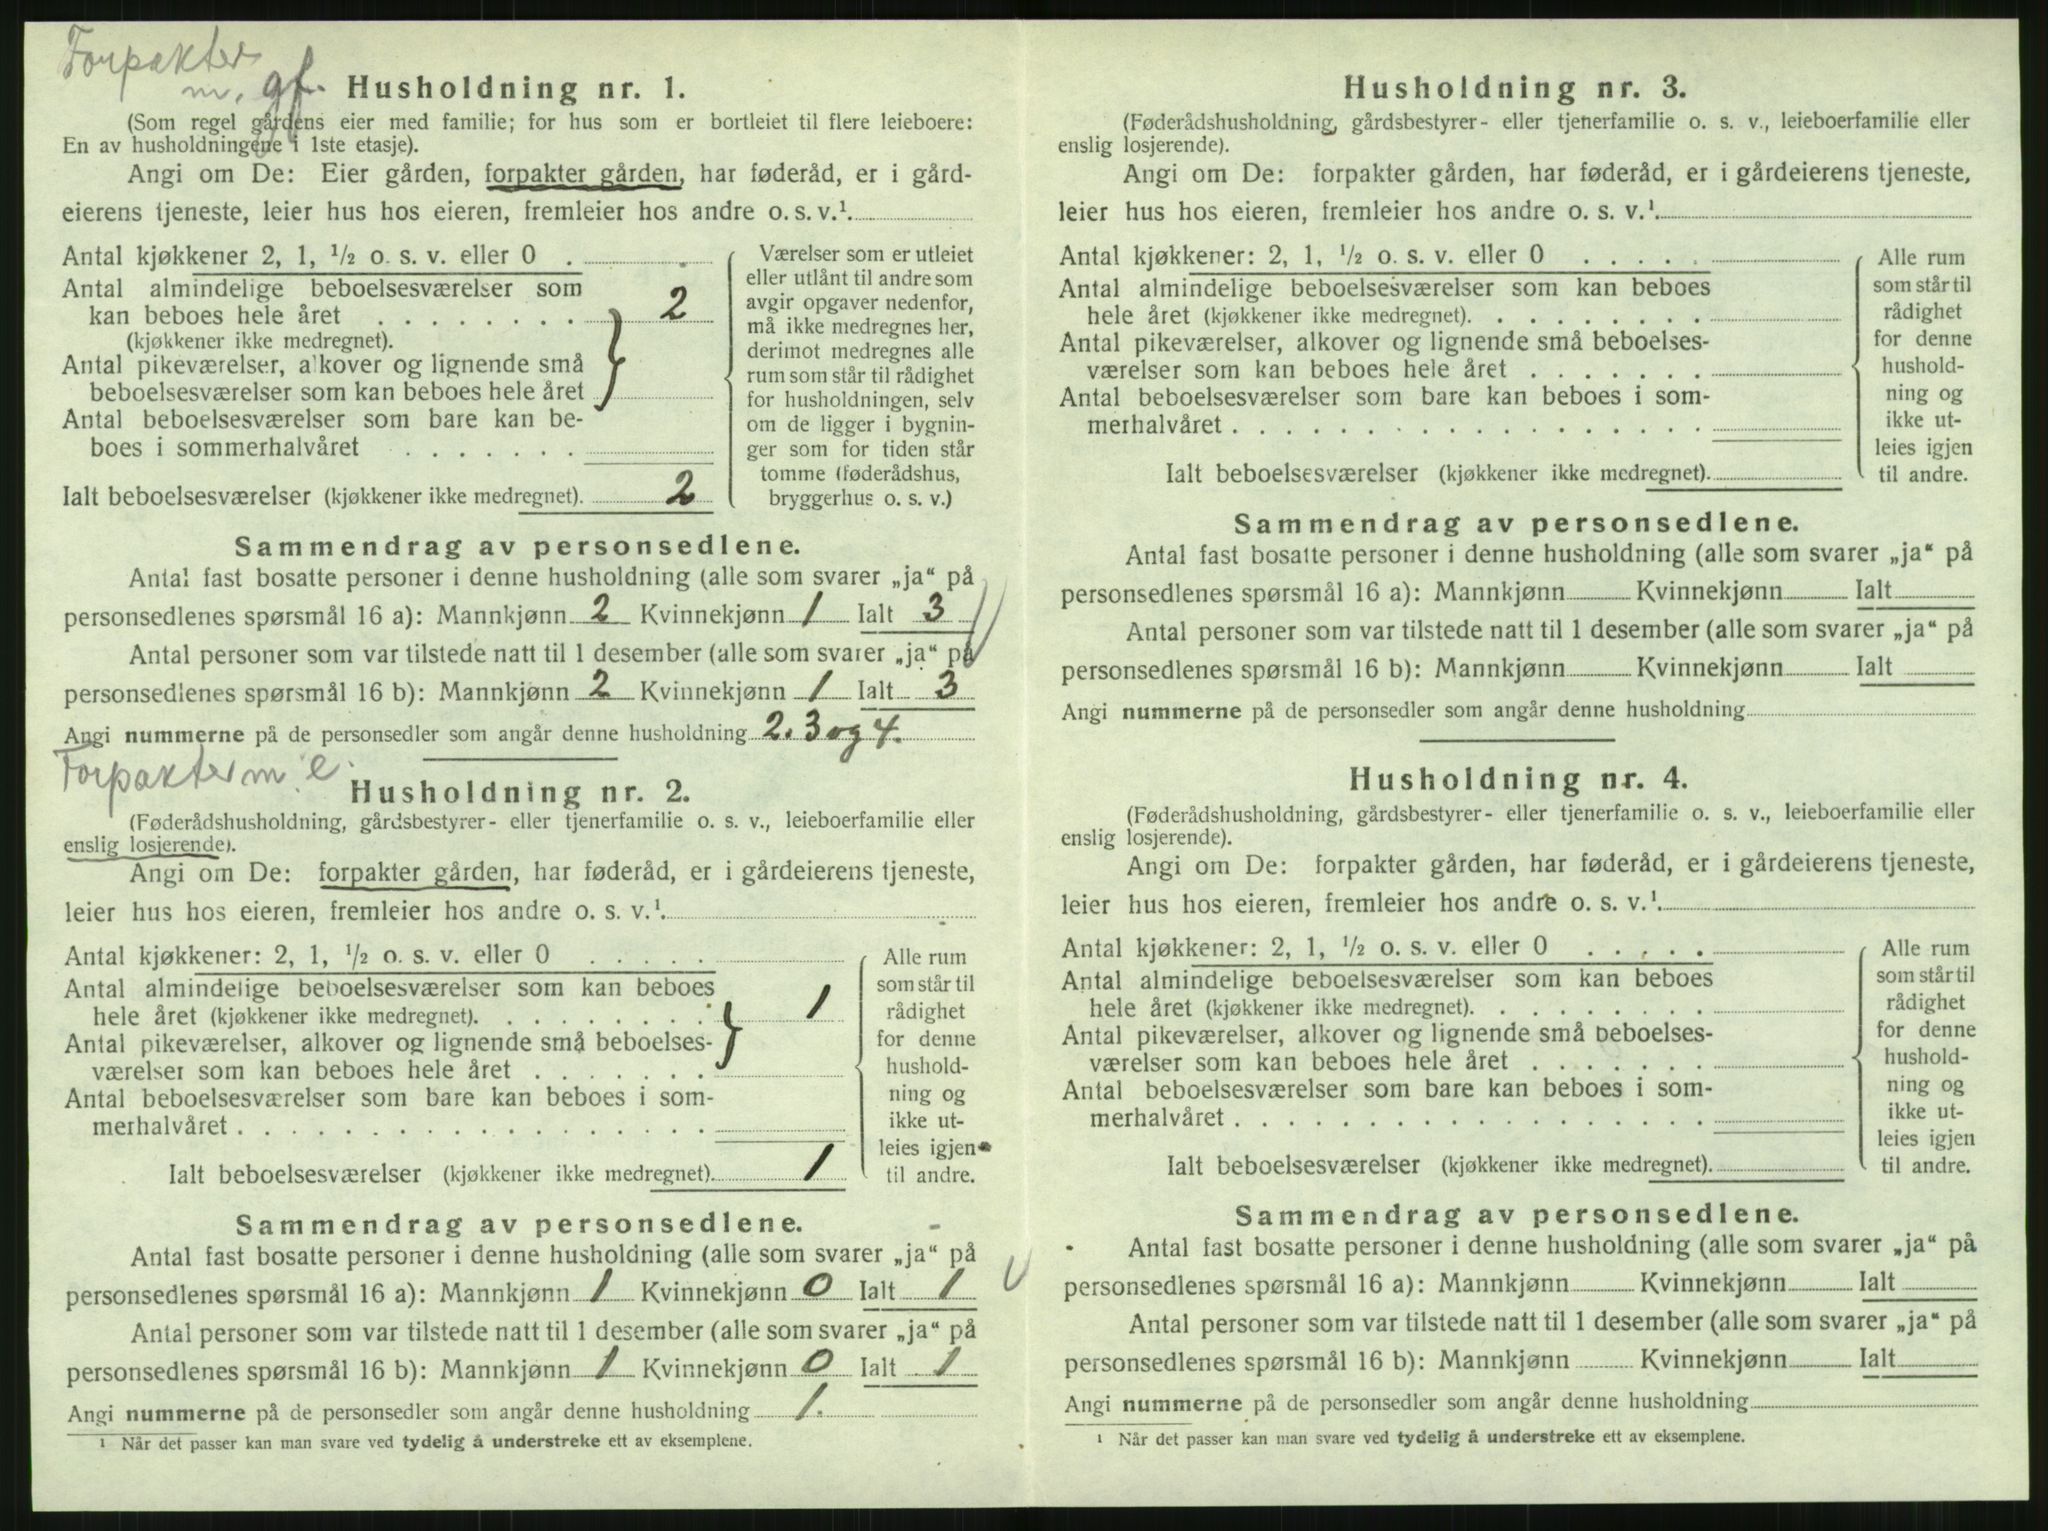 Forpakter
m. gf.
Husholdning nr. 1.
(Som regel gårdens eier med familie; for hus som er bortleiet til flere leieboere:
En av husholdningene i 1ste etasje).
Angi om De: Eier gården, forpakter gården, har føderåd, er i gård-
eierens tjeneste, leier hus hos eieren, fremleier hos andre o. s. v.¹
Antal kjøkkener 2, 1, ½ o. s. v. eller 0 .
Antal almindelige beboelsesværelser som
kan beboes hele året . . . . . . . . 2
(kjøkkener ikke medregnet).
Antal pikeværelser, alkover og lignende små
beboelsesværelser som kan beboes hele året
Antal beboelsesværelser som bare kan be-
boes i sommerhalvåret . . . . . . .
Ialt beboelsesværelser (kjøkkener ikke medregnet). 2
Værelser som er utleiet
eller utlånt til andre som
avgir opgaver nedenfor,
må ikke medregnes her,
derimot medregnes alle
rum som står til rådighet
for husholdningen, selv
om de ligger i bygnin-
ger som for tiden står
tomme (føderådshus,
bryggerhus o. s. v.)
Sammendrag av personsedlene.
Antal fast bosatte personer i denne husholdning (alle som svarer „ja“ på
personsedlenes spørsmål 16 a): Mannkjønn 2 Kvinnekjønn 1 Ialt 3
Antal personer som var tilstede natt til 1 desember (alle som svarer „ja“ på
personsedlenes spørsmål 16 b): Mannkjønn 2 Kvinnekjønn 1 Ialt 3
Angi nummerne på de personsedler som angår denne husholdning 2. 3 og 4.
Forpakter m e.
Husholdning nr. 2.
(Føderådshusholdning, gårdsbestyrer- eller tjenerfamilie o. s. v., leieboerfamilie eller
enslig losjerende).
Angi om De: forpakter gården, har føderåd, er i gårdeierens tjeneste,
leier hus hos eieren, fremleier hos andre o. s. v.¹
Antal kjøkkener: 2, 1, ½ o. s. v. eller 0 . . . . .
Antal almindelige beboelsesværelser som kan beboes
hele året (kjøkkener ikke medregnet). . . . . . . . . 1
Antal pikeværelser, alkover og lignende små beboelses-
værelser som kan beboes hele året . . . . . . .
Antal beboelsesværelser som bare kan beboes i som-
merhalvåret . . . . . . . . . . . . . . . . . .
Ialt beboelsesværelser (kjøkkener ikke medregnet). 1
Alle rum
som står til
rådighet
for denne
hushold-
ning og
ikke ut-
leies igjen
til andre.
Sammendrag av personsedlene.
Antal fast bosatte personer i denne husholdning (alle som svarer „ja“ på
personsedlenes spørsmål 16 a): Mannkjønn 1 Kvinnekjønn 0 Ialt 1
Antal personer som var tilstede natt til 1 desember (alle som svarer „ja“ på
personsedlenes spørsmål 16 b): Mannkjønn 1 Kvinnekjønn 0 Ialt 1
Angi nummerne på de personsedler som angår denne husholdning 1.
¹ Når det passer kan man svare ved tydelig å understreke ett av eksemplene.
Husholdning nr. 3.
(Føderådshusholdning, gårdsbestyrer- eller tjenerfamilie o. s. v., leieboerfamilie eller
enslig losjerende).
Angi om De: forpakter gården, har føderåd, er i gårdeierens tjeneste,
leier hus hos eieren, fremleier hos andre o. s. v.¹
Antal kjøkkener: 2, 1, ½ o. s. v. eller 0 . . . . .
Antal almindelige beboelsesværelser som kan beboes
hele året (kjøkkener ikke medregnet). . . . . . . . .
Antal pikeværelser, alkover og lignende små beboelses-
værelser som kan beboes hele året . . . . . . .
Antal beboelsesværelser som bare kan beboes i som-
merhalvåret . . . . . . . . . . . . . . . . . .
Ialt beboelsesværelser (kjøkkener ikke medregnet).
Alle rum
som står til
rådighet
for denne
hushold-
ning og
ikke ut-
leies igjen
til andre.
Sammendrag av personsedlene.
Antal fast bosatte personer i denne husholdning (alle som svarer „ja“ på
personsedlenes spørsmål 16 a): Mannkjønn Kvinnekjønn Ialt
Antal personer som var tilstede natt til 1 desember (alle som svarer „ja“ på
personsedlenes spørsmål 16 b): Mannkjønn Kvinnekjønn Ialt
Angi nummerne på de personsedler som angår denne husholdning
Husholdning nr. 4.
(Føderådshusholdning, gårdsbestyrer- eller tjenerfamilie o. s. v., leieboerfamilie eller
enslig losjerende).
Angi om De: forpakter gården, har føderåd, er i gårdeierens tjeneste,
leier hus hos eieren, fremleier hos andre o. s. v.¹
Antal kjøkkener: 2, 1, ½ o. s. v. eller 0 . . . . .
Antal almindelige beboelsesværelser som kan beboes
hele året (kjøkkener ikke medregnet). . . . . . . . .
Antal pikeværelser, alkover og lignende små beboelses-
værelser som kan beboes hele året . . . . . . .
Antal beboelsesværelser som bare kan beboes i som-
merhalvåret . . . . . . . . . . . . . . . . . .
Ialt beboelsesværelser (kjøkkener ikke medregnet).
Alle rum
som står til
rådighet
for denne
hushold-
ning og
ikke ut-
leies igjen
til andre.
Sammendrag av personsedlene.
Antal fast bosatte personer i denne husholdning (alle som svarer „ja“ på
personsedlenes spørsmål 16 a): Mannkjønn Kvinnekjønn Ialt
Antal personer som var tilstede natt til 1 desember (alle som svarer „ja“ på
personsedlenes spørsmål 16 b): Mannkjønn Kvinnekjønn Ialt
Angi nummerne på de personsedler som angår denne husholdning
¹ Når det passer kan man svare ved tydelig å understreke ett av eksemplene.